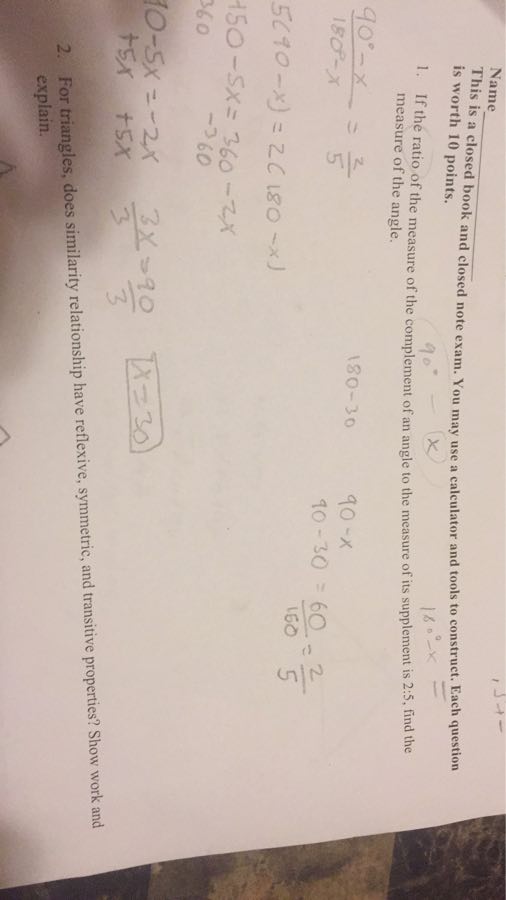 Name
This is a closed book and closed note exam. You may use a calculator and tools to construct. Each question
is worth 10 points.
90° - x
180° - x =
1. If the ratio of the measure of the complement of an angle to the measure of its supplement is 2:5, find the
measure of the angle.
90° - x / 180° - x = 2/5
180-30
90-x
90-30 = 60/150 = 2/5
5(90-x) = 2(180-x)
450-5x = 360-2x
360 -360
90-5x = -2x
+5x +5x
3x/3 = 90/3
x=30
2. For triangles, does similarity relationship have reflexive, symmetric, and transitive properties? Show work and
explain.